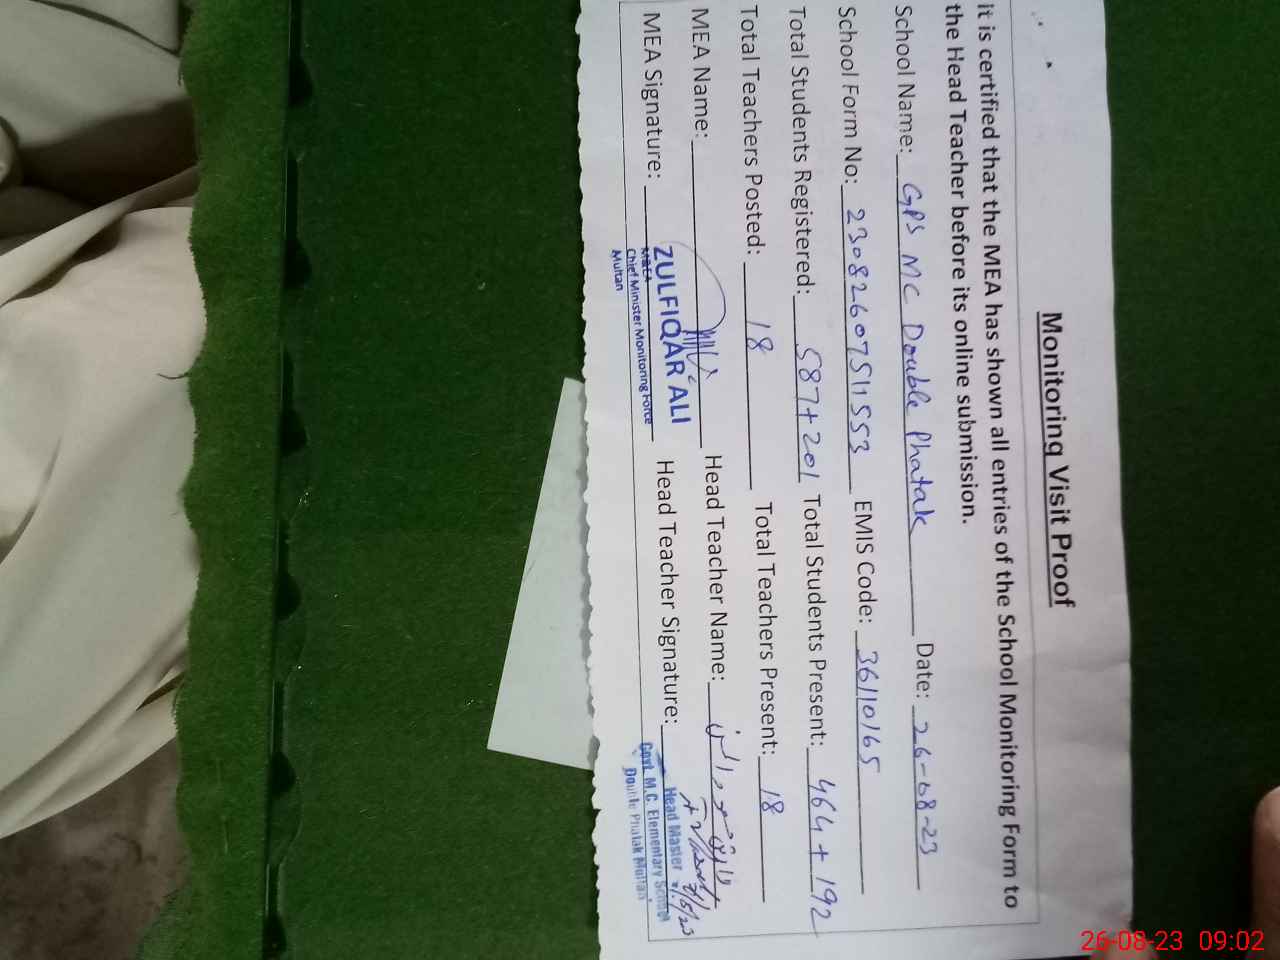 Monitoring Visit Proof
it is certified that the MEA has shown all entries of the School Monitoring Form to
the Head Teacher before its online submission.
School Name: GPS MC Double Phatak Date: 26-08-23
School Form No: 2308260751153 EMIS Code: 36110165
Total Students Registered: 587+201 Total Students Present: 464+192
Total Teachers Posted: 18 Total Teachers Present: 18
MEA Name: Head Teacher Name:
MEA Signature: ZULFIQAR ALI Head Teacher Signature:
M&EA
Chief Minister Monitoring Force
Multan
Head Master
Govt. M.C. Elementary School
Double Phatak Multan
26-08-23 09:02